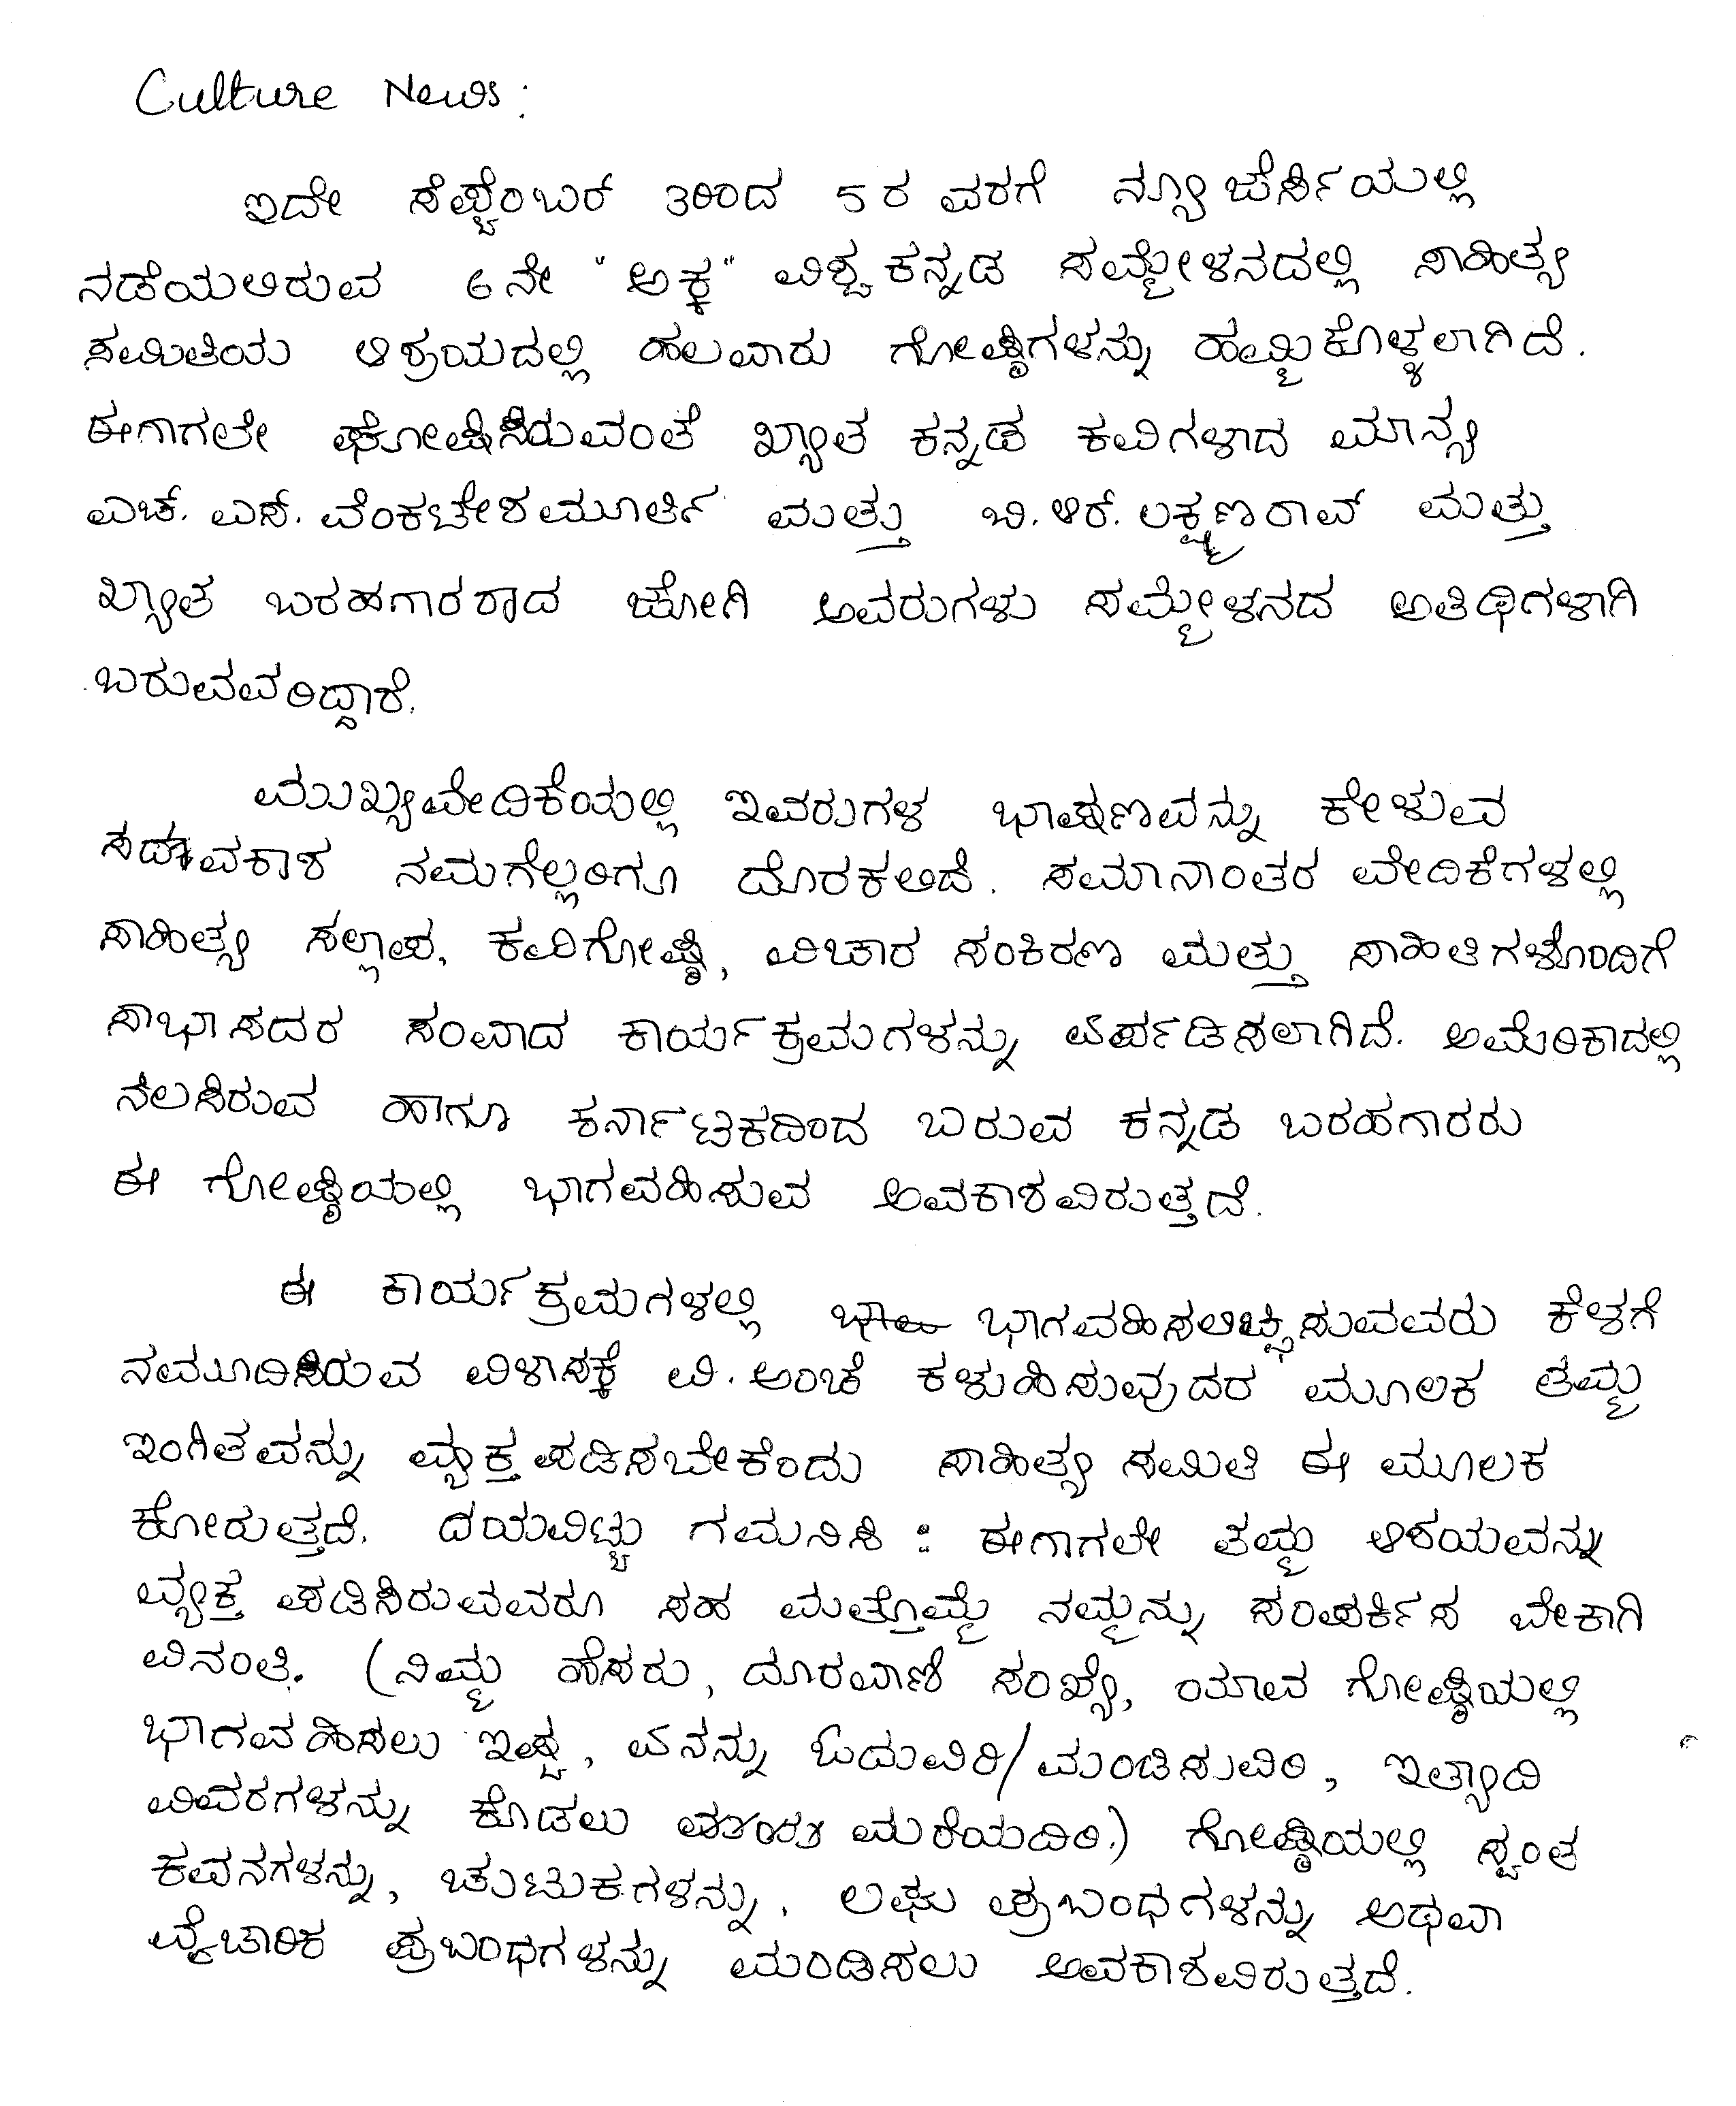 Culture News:
ಇದೇ ಸೆಪ್ಟೆಂಬರ್ 3ರಿಂದ 5ರ ವರಗೆ ನ್ಯೂಜೆರ್ಸಿಯಲ್ಲಿ
ನಡೆಯಲಿರುವ 6ನೇ "ಅಕ್ಕ" ವಿಶ್ವಕನ್ನಡ ಸಮ್ಮೇಳನದಲ್ಲಿ ಸಾಹಿತ್ಯ
ಸಮಿತಿಯ ಆಶ್ರಯದಲ್ಲಿ ಹಲವಾರು ಗೋಷ್ಠಿಗಳನ್ನು ಹಮ್ಮಿಕೊಳ್ಳಲಾಗಿದೆ.
ಈಗಾಗಲೇ ಘೋಷಿಸಿರುವಂತೆ ಖ್ಯಾತ ಕನ್ನಡ ಕವಿಗಳಾದ ಮಾನ್ಯ
ಎಚ್. ಎಸ್. ವೆಂಕಟೇಶಮೂರ್ತಿ ಮತ್ತು ಬಿ. ಆರ್. ಲಕ್ಷ್ಮಣರಾವ್ ಮತ್ತು
ಖ್ಯಾತ ಬರಹಗಾರರಾದ ಜೋಗಿ ಅವರುಗಳು ಸಮ್ಮೇಳನದ ಅತಿಥಿಗಳಾಗಿ
ಬರುವವರಿದ್ದಾರೆ.
ಮುಖ್ಯವೇದಿಕೆಯಲ್ಲಿ ಇವರುಗಳ ಭಾಷಣವನ್ನು ಕೇಳುವ
ಸದಾವಕಾಶ ನಮಗೆಲ್ಲರಿಗೂ ದೊರಕಲಿದೆ. ಸಮಾನಾಂತರ ವೇದಿಕೆಗಳಲ್ಲಿ
ಸಾಹಿತ್ಯ ಸಲ್ಲಾಪ, ಕವಿಗೋಷ್ಠಿ, ವಿಚಾರ ಸಂಕಿರಣ ಮತ್ತು ಸಾಹಿತಿಗಳೊಂದಿಗೆ
ಸಾಭಾಸದರ ಸಂವಾದ ಕಾರ್ಯಕ್ರಮಗಳನ್ನು ಏರ್ಪಡಿಸಲಾಗಿದೆ. ಅಮೆರಿಕಾದಲ್ಲಿ
ನೆಲಸಿರುವ ಹಾಗೂ ಕರ್ನಾಟಕದಿಂದ ಬರುವ ಕನ್ನಡ ಬರಹಗಾರರು
ಈ ಗೋಷ್ಠಿಯಲ್ಲಿ ಭಾಗವಹಿಸುವ ಅವಕಾಶವಿರುತ್ತದೆ.
ಈ ಕಾರ್ಯಕ್ರಮಗಳಲ್ಲಿ ಭಾಗವಹಿಸಲಿಚ್ಛಿಸುವವರು ಕೆಳಗೆ
ನಮೂದಿಸಿರುವ ವಿಳಾಸಕ್ಕೆ ವಿ. ಅಂಚೆ ಕಳುಹಿಸುವುದರ ಮೂಲಕ ತಮ್ಮ
ಇಂಗಿತವನ್ನು ವ್ಯಕ್ತಪಡಿಸಬೇಕೆಂದು ಸಾಹಿತ್ಯ ಸಮಿತಿ ಈ ಮೂಲಕ
ಕೋರುತ್ತದೆ. ದಯವಿಟ್ಟು ಗಮನಿಸಿ : ಈಗಾಗಲೇ ತಮ್ಮ ಆಶಯವನ್ನು
ವ್ಯಕ್ತ ಪಡಿಸಿರುವವರೂ ಸಹ ಮತ್ತೊಮ್ಮೆ ನಮ್ಮನ್ನು ಸಂಪರ್ಕಿಸ ಬೇಕಾಗಿ
ವಿನಂತಿ. (ನಿಮ್ಮ ಹೆಸರು, ದೂರವಾಣಿ ಸಂಖ್ಯೆ, ಯಾವ ಗೋಷ್ಠಿಯಲ್ಲಿ
ಭಾಗವಹಿಸಲು ಇಷ್ಟ, ಏನನ್ನು ಓದುವಿರಿ/ಮಂಡಿಸುವಿರಿ, ಇತ್ಯಾದಿ
ವಿವರಗಳನ್ನು ಕೊಡಲು ಮರೆಯದಿರಿ.) ಗೋಷ್ಠಿಯಲ್ಲಿ ಸ್ವಂತ
ಕವನಗಳನ್ನು, ಚುಟುಕಗಳನ್ನು, ಲಘು ಪ್ರಬಂಧಗಳನ್ನು ಅಥವಾ
ವೈಚಾರಿಕ ಪ್ರಬಂಧಗಳನ್ನು ಮಂಡಿಸಲು ಅವಕಾಶವಿರುತ್ತದೆ.